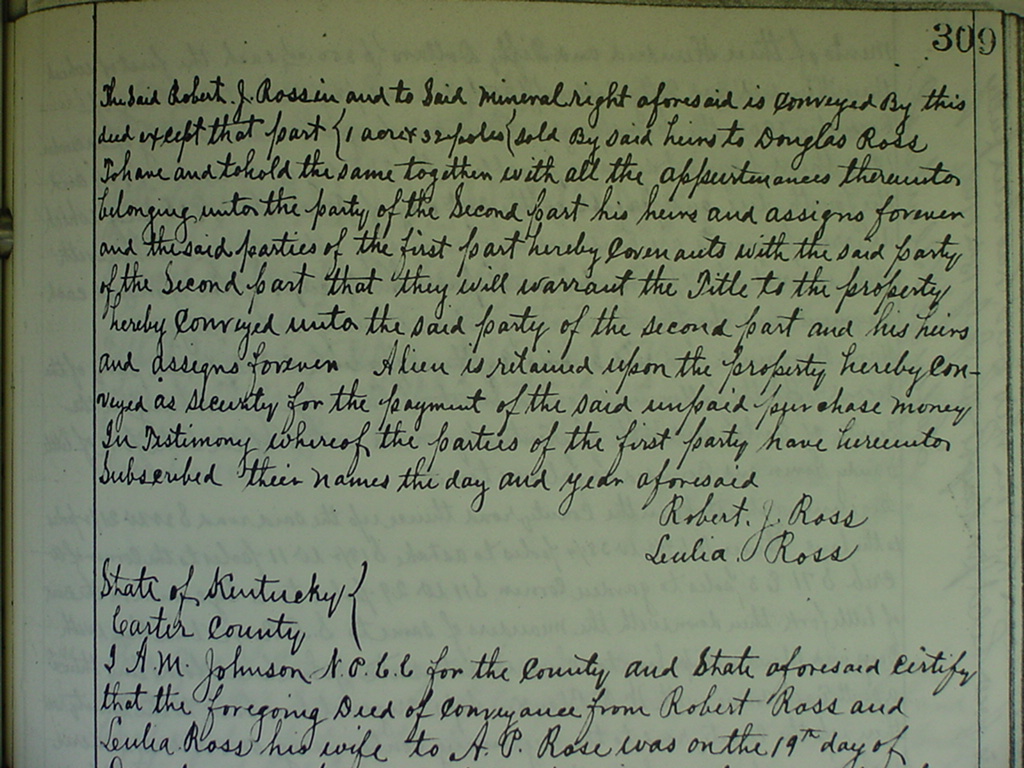 309
The Said Robert. J. Ross in and to Said Mineral right aforesaid is Conveyed By this
deed except that part {1 acre & 32 poles{ sold By said heirs to Douglas Ross
To have and to hold the same together with all the appurtenances thereunto
belonging unto the party of the Second part his heirs and assigns forever
and the said parties of the first part hereby Covenants with the said party
of the Second part that they will warrant the Title to the property
hereby Conveyed unto the said party of the second part and his heirs
and assigns forever A lien is retained upon the property hereby Con-
veyed as security for the payment of the said unpaid purchase money
In Testimony whereof the parties of the first party have hereunto
Subscribed their names the day and year aforesaid
Robert. J. Ross
Leulia. Ross
State of Kentucky {
Carter County
I A. M. Johnson N. P. C. C for the County and State aforesaid certify
that the foregoing Deed of Conveyance from Robert Ross and
Leulia Ross his wife to A. P. Rose was on the 19th day of